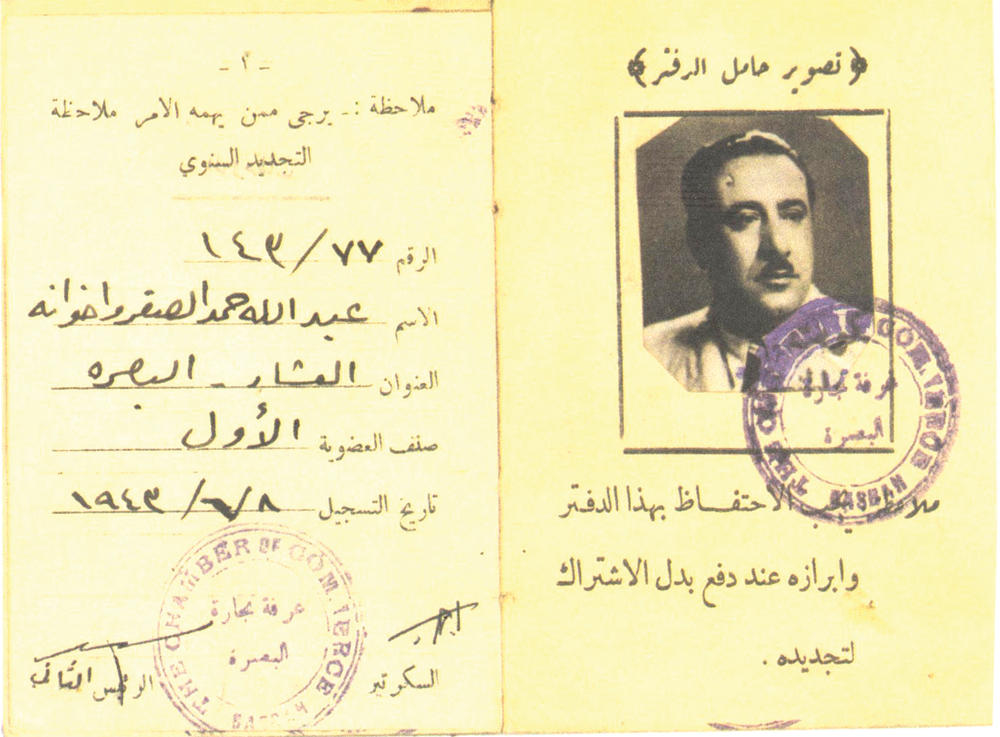 ﴿ تصوير حامل الدفتر ﴾
THE CHAMBER OF COMMERCE
غرفة تجارة
البصرة
BASRAH
ملاحظة يجب الاحتفـاظ بهذا الدفتر
وابرازه عند دفع بدل الاشتراك
لتجديده .
- ٢ -
ملاحظة :- يرجى ممن يهمه الامر ملاحظة
التجديد السنوي
الرقم ١٤٣/٧٧
الاسم عبدالله حمد الصقر واخوانه
العنوان العشار - البصره
صنف العضوية الأول
تاريخ التسجيل ١٩٤٣/٦/٨
THE CHAMBER OF COMMERCE
غرفة تجارة
البصرة
BASRAH
السكرتير
الرئيس الثاني